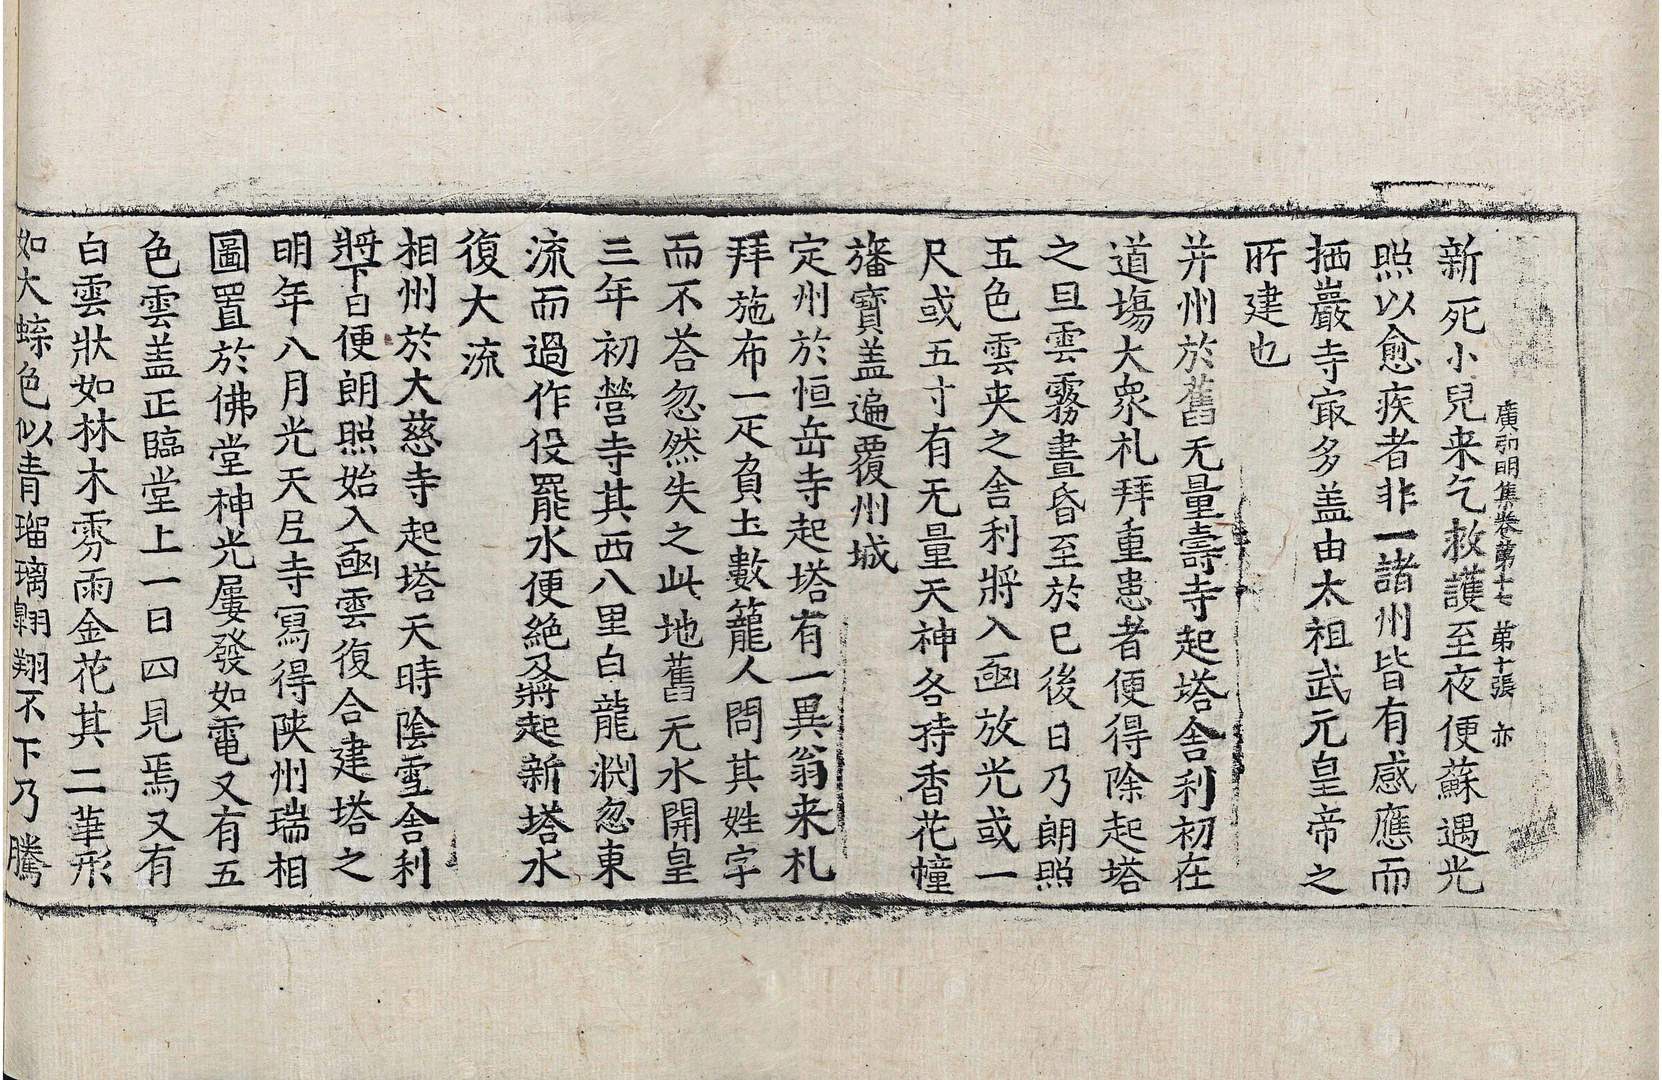 廣弘明集卷第十七 第十張 亦
新死小兒来乞救護至夜便蘇遇光
照以愈疾者非一諸州皆有感應而
栖巖寺㝡多盖由太祖武元皇帝之
所建也
并州於舊无量壽寺起塔舍利初在
道場大衆礼拜重患者便得除起塔
之旦雲霧晝昏至於巳後日乃朗照
五色雲夾之舍利將入凾放光或一
尺或五寸有无量天神各持香花幢
旛寶盖遍覆州城
定州於恒岳寺起塔有一異翁来礼
拜施布一疋負土數籠人問其姓字
而不荅忽然失之此地舊无水開皇
三年初營寺其西八里白龍渊忽東
流而過作役罷水便絶及將起新塔水
復大流
相州於大慈寺起塔天時陰雪舍利
將下日便朗照始入凾雲復合建塔之
明年八月光天尼寺寫得陕州瑞相
圖置於佛堂神光屢發如電又有五
色雲盖正臨堂上一日四見焉又有
白雲狀如林木雰雨金花其二華形
如大蛛色似青瑠璃翺翔不下乃騰